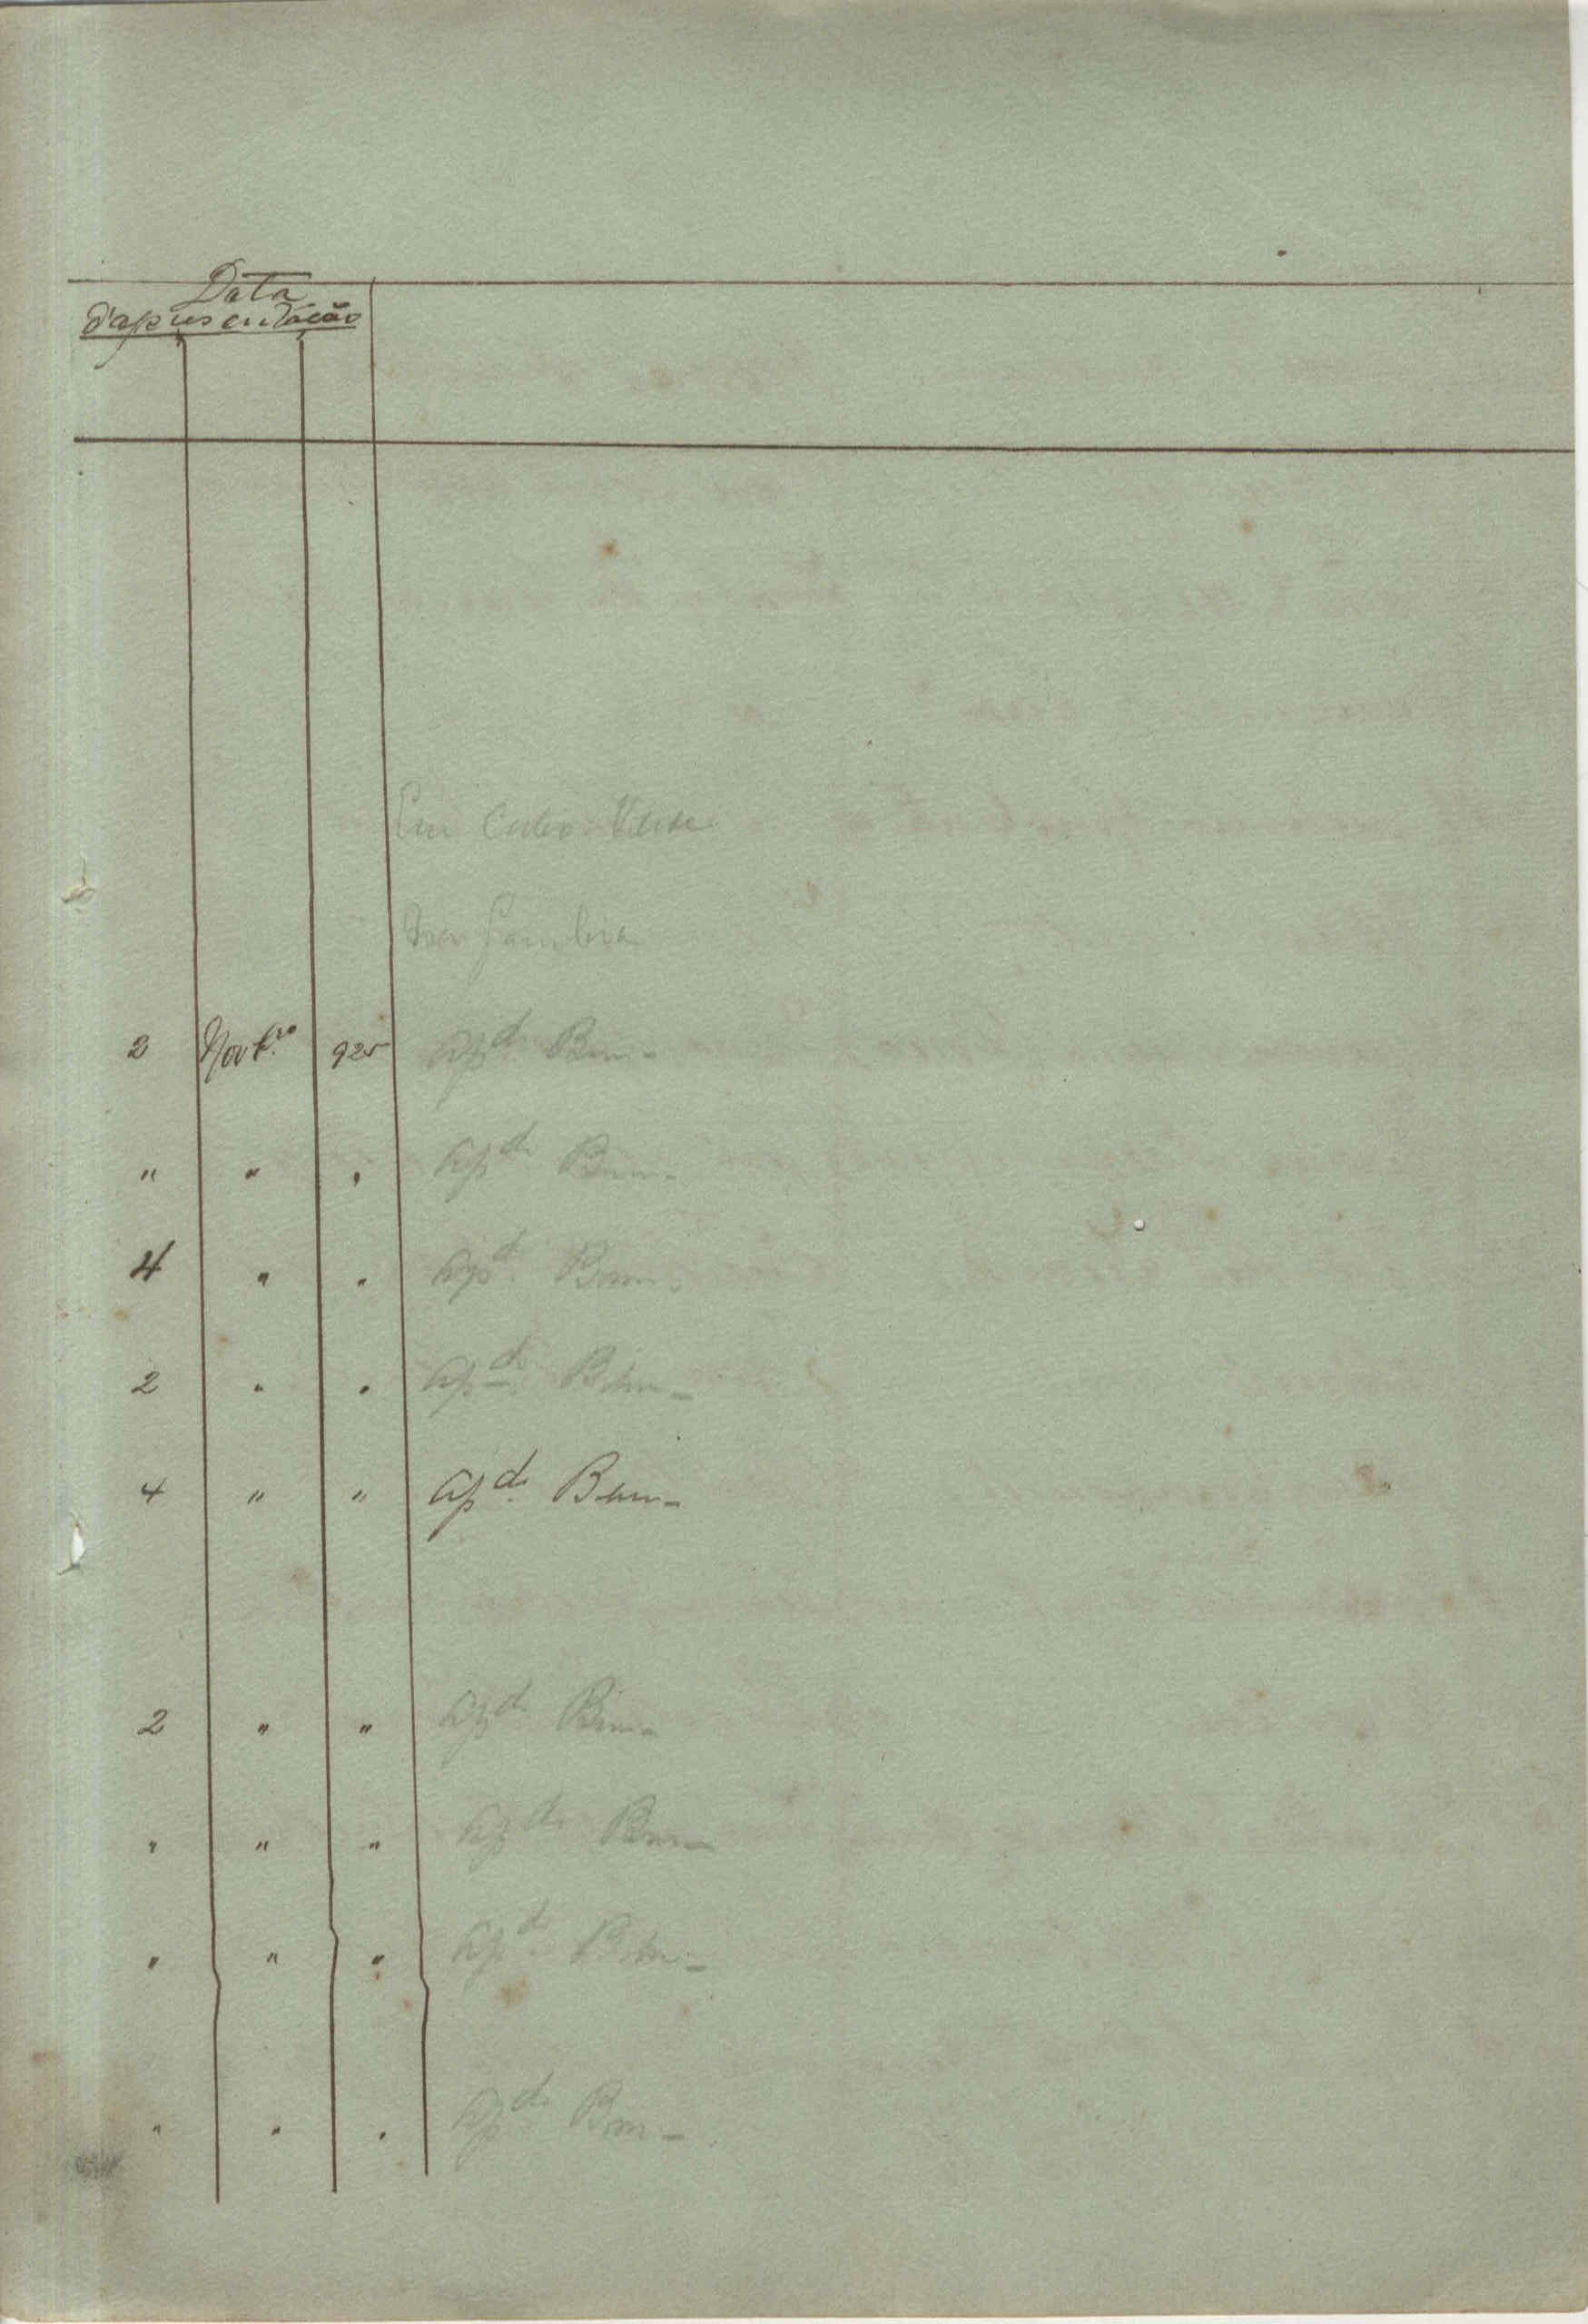 Data
d'apresentação
Em Cabo Verde
Na Gambia
2 Novbro 925 Apdo Bem-
" " " Apdo Bem-
4 " " Apdo Bem-
2 " " Apdo Bem-
4 " " Apdo Bem-
2 " " Apdo Bem-
" " " Apdo Bem-
" " " Apdo Bem-
" " " Apdo Bem-